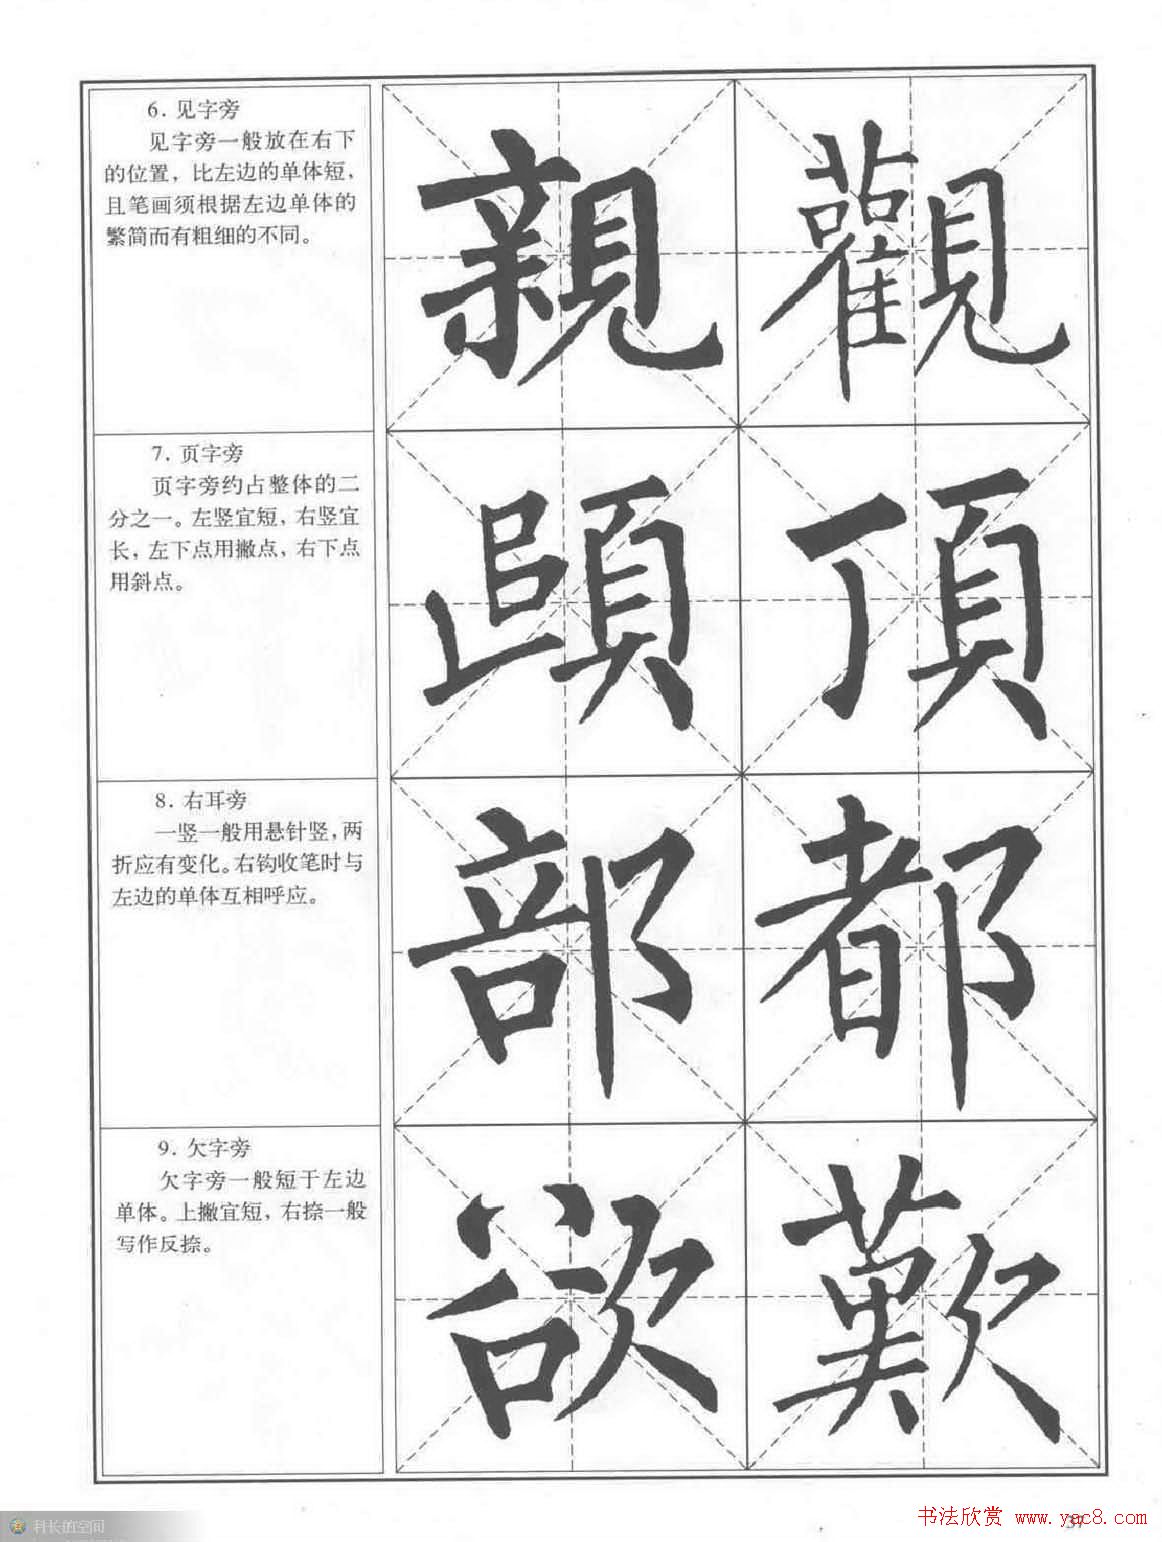 6. 见字旁
见字旁一般放在右下
的位置，比左边的单体短，
且笔画须根据左边单体的
繁简而有粗细的不同。
親 觀
7. 页字旁
页字旁约占整体的二
分之一。左竖宜短，右竖宜
长，左下点用撇点，右下点
用斜点。
頂
8. 右耳旁
一竖一般用悬针竖，两
折应有变化。右钩收笔时与
左边的单体互相呼应。
部 都
9. 欠字旁
欠字旁一般短于左边
单体。上撇宜短，右捺一般
写作反捺。
欲 歎
科长的空间
书法欣赏 www.yac8.com
37